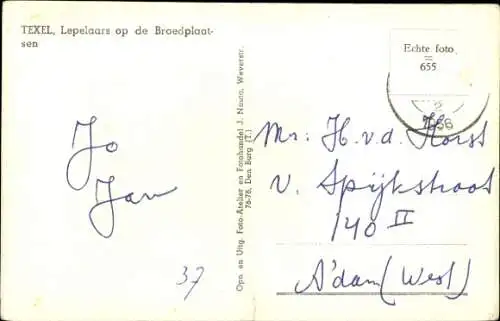 TEXEL, Lepelaars op de Broedplaat-
sen
Echte foto
=
655
2
56
Jo
Jan
37
Opn. en Uitg. Foto-Atelier en Fotohandel J. Nauta, Weverstr.
76-78, Den Burg (T.)
Mr: H.v.d. Horst
v. Spijkstraat
140 II
A'dam (West)